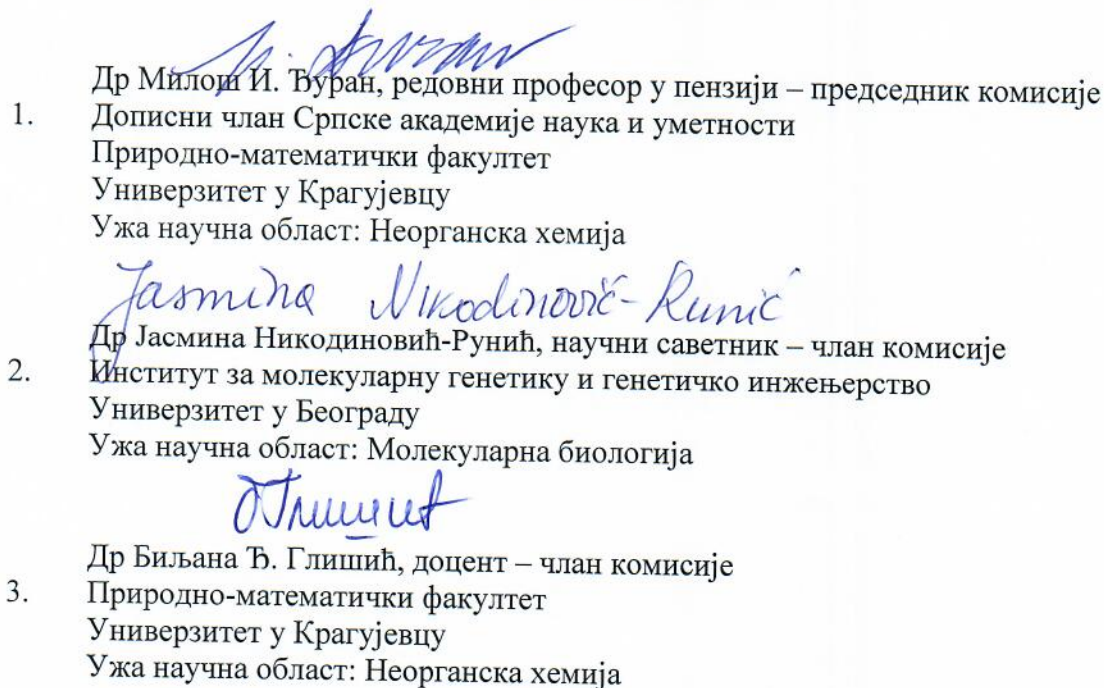 М. Ђуран
Др Милош И. Ђуран, редовни професор у пензији – председник комисије
1. Дописни члан Српске академије наука и уметности
Природно-математички факултет
Универзитет у Крагујевцу
Ужа научна област: Неорганска хемија
Jasmina Nikodinović-Runić
Др Јасмина Никодиновић-Рунић, научни саветник – члан комисије
2. Институт за молекуларну генетику и генетичко инжењерство
Универзитет у Београду
Ужа научна област: Молекуларна биологија
БГлишић
Др Биљана Ђ. Глишић, доцент – члан комисије
3. Природно-математички факултет
Универзитет у Крагујевцу
Ужа научна област: Неорганска хемија